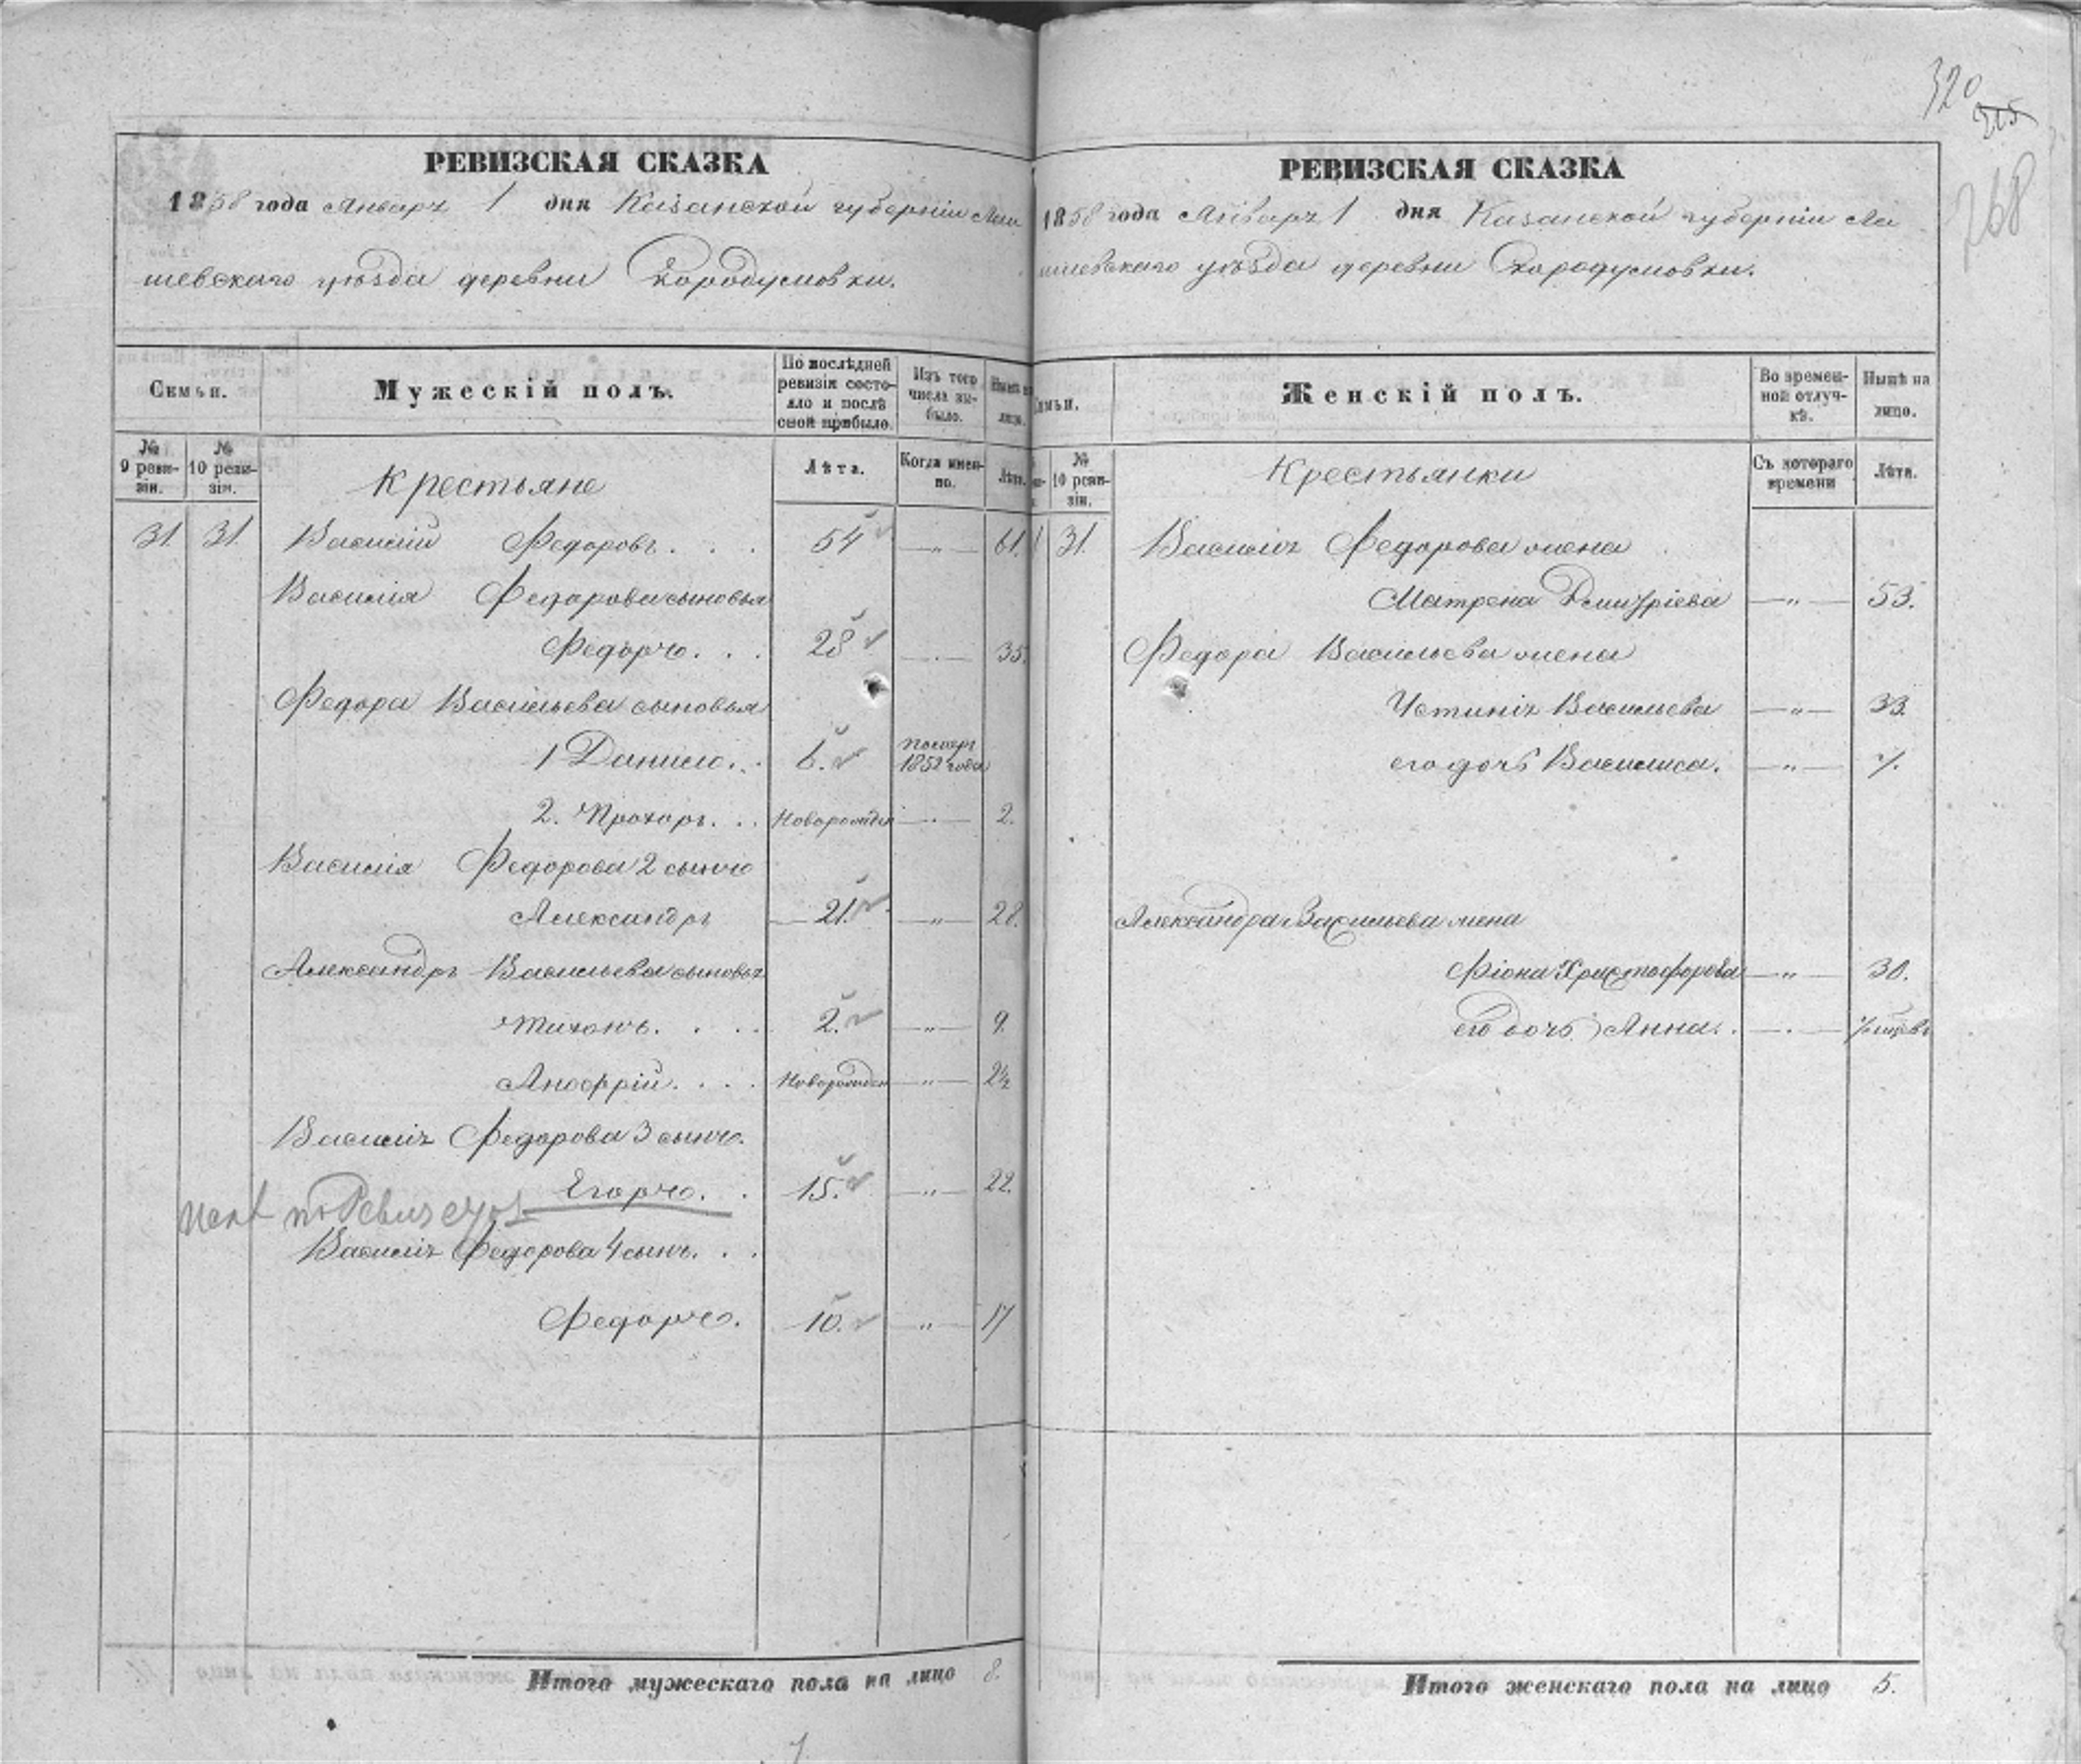 320
315
268
РЕВИЗСКАЯ СКАЗКА
1858 года Января 1 дня Казанской губернiи Лаи
шевскаго уѣзда деревни
Семьи.
Мужескiй полъ.
По послѣдней ревизiи состояло и послѣ оной прибыло.
Изъ того числа выбыло.
Нынѣ на лицо.
№ 9 ревизiи.
№ 10 ревизiи.
Крестьяне
Лѣта.
Когда именно.
Лѣта.
31. 31. Василiй Федоровъ . . . 54 —"— 61.
Василiя Федорова сыновья
Федоръ . . . 28 —"— 35.
Федора Васильева сыновья
1 Данило . . 6. 1852 года
2. Прохоръ . . . Новорожден —"— 2.
Василiя Федорова 2 сынъ
Александръ — 21. —"— 28.
Александръ Васильева сыновья
Тихонъ . . . . 2. —"— 9.
. . . . Новорожден —"— 2½
Василiя Федорова 3 сынъ.
Егоръ. . 15. —"— 22.
Василiя Федорова 4 сынъ. . .
Федоръ. 10. —"— 17
Итого мужескаго пола на лицо 8.
РЕВИЗСКАЯ СКАЗКА
1858 года Января 1 дня Казанской губернiи Лаи
шевскаго уѣзда деревни
Семьи.
Женскiй полъ.
Во временной отлучкѣ.
Нынѣ на лицо.
№ 10 ревизiи.
Крестьянки
Съ котораго времени
Лѣта.
31. Василiя Федорова жена
Матрена Дмитрiева —"— 53.
Федора Васильева жена
Устинiя Васильева —"— 33.
его дочь Василиса. —"— 7.
Александра Васильева жена
Фiона Христофорова —"— 30.
его дочь Анна . . —"—
Итого женскаго пола на лицо 5.